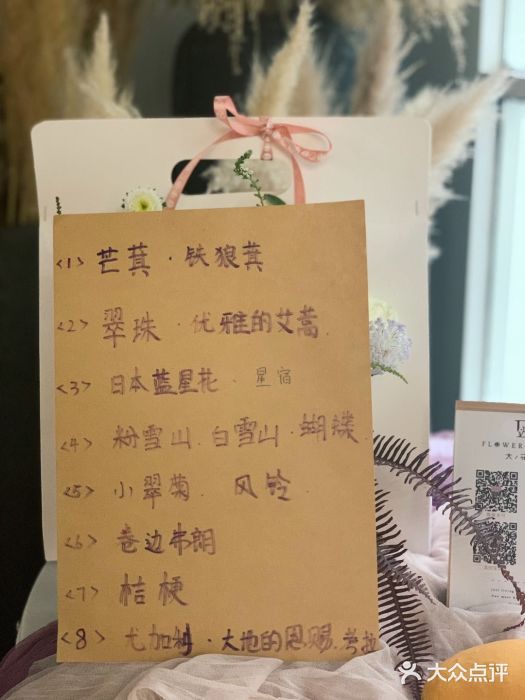 <1> 芒萁 · 铁狼萁
<2> 翠珠 · 优雅的艾蒿
<3> 日本蓝星花 · 星宿
<4> 粉雪山 . 白雪山 · 蝴蝶
<5> 小翠菊 . 风铃
<6> 卷边弗朗
<7> 桔梗
<8> 尤加利 · 大地的恩赐 . 考拉
FLOWER
大众点评